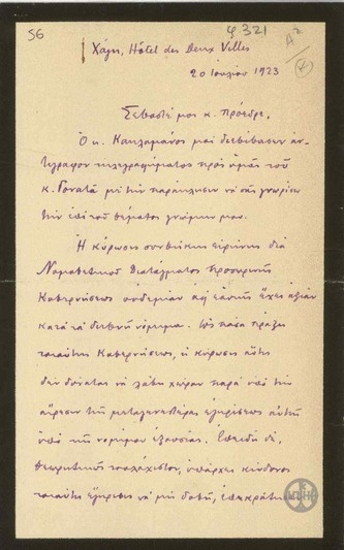 56
φ. 321
Χάγη, Hôtel des Deux Villes
20 Ιουλίου 1923
Σεβαστέ μοι κ. Πρόεδρε,
Ο κ. Κακλαμάνος μοι διεβίβασεν αν-
τίγραφον τηλεγραφήματος προς υμάς του
κ. Γονατά με την παράκλησιν να σας γνωρίσω
την επί του θέματος γνώμην μου.
Η κύρωσις συνθήκης ειρήνης διά
Νομοθετικού Διατάγματος προσωρινής
Κυβερνήσεως ουδεμίαν αφ' εαυτής έχει αξίαν
κατά τα διεθνή νόμιμα. Ως πάσα πράξις
τοιαύτης Κυβερνήσεως, η κύρωσις αύτη
δεν δύναται να λάβη χώραν παρά υπό την
αίρεσιν της μεταγενεστέρας εγκρίσεως αυτής
υπό της νομίμου εξουσίας. Επειδή δε,
θεωρητικώς τουλάχιστον, υπάρχει κίνδυνος
τοιαύτη έγκρισις να μη δοθή,